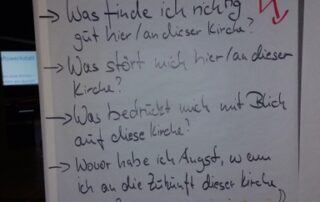 → Was finde ich richtig
gut hier/an dieser Kirche?
→ Was stört mich hier/an dieser
Kirche?
→ Was bedrückt mich mit Blick
auf diese Kirche?
→ Wovor habe ich Angst, wenn
ich an die Zukunft dieser Kirche